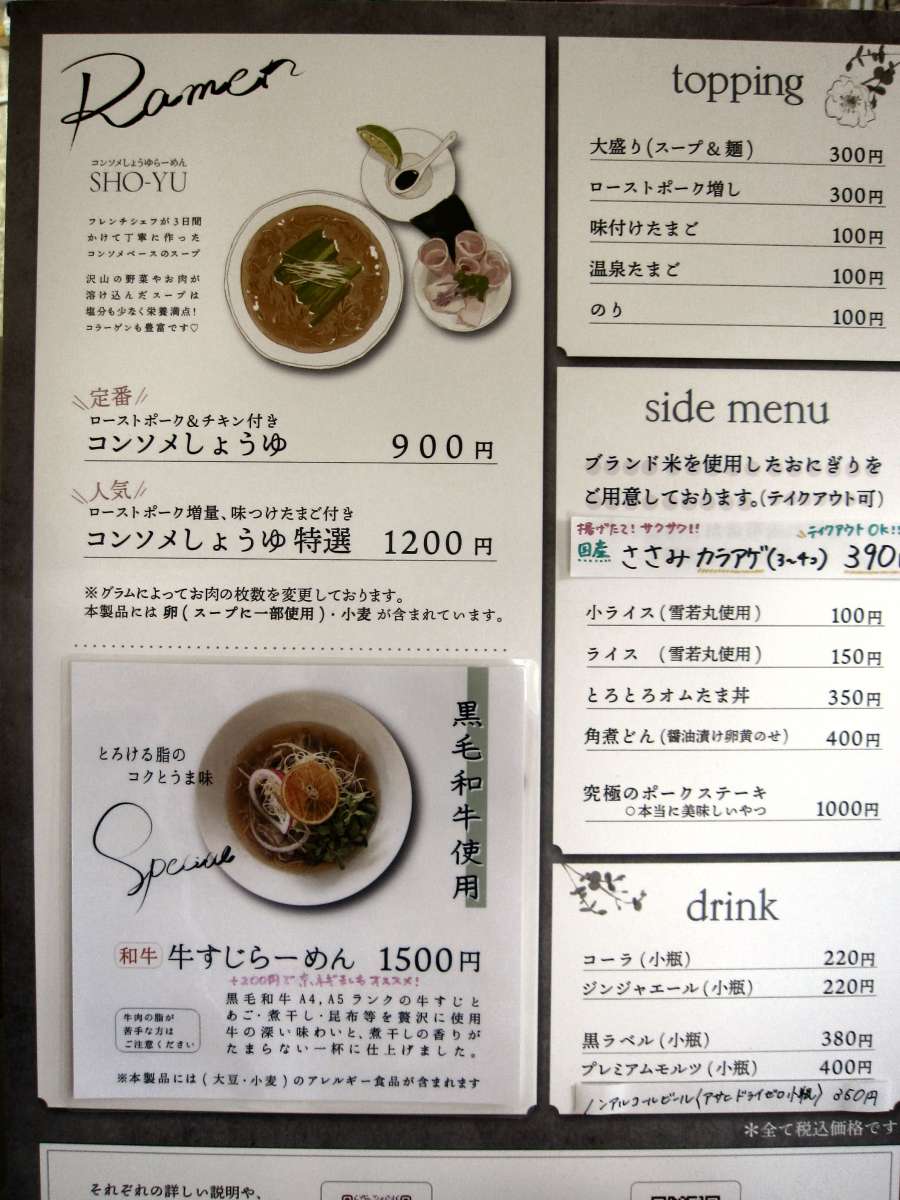 Ramen
コンソメしょうゆらーめん
SHO-YU
フレンチシェフが3日間
かけて丁寧に作った
コンソメベースのスープ
沢山の野菜やお肉が
溶け込んだスープは
塩分も少なく栄養満点!
コラーゲンも豊富です♡
定番
ローストポーク&チキン付き
コンソメしょうゆ 900円
人気
ローストポーク増量、味つけたまご付き
コンソメしょうゆ 特選 1200円
※グラムによってお肉の枚数を変更しております。
本製品には 卵 (スープに一部使用)・小麦 が含まれています。
とろける脂の
コクとうま味
Special
黒毛和牛使用
和牛 牛すじらーめん 1500円
+200円で
オススメ!
黒毛和牛A4,A5ランクの牛すじと
あご・煮干し・昆布等を贅沢に使用
牛の深い味わいと、煮干しの香りが
たまらない一杯に仕上げました。
牛肉の脂が
苦手な方は
ご注意ください
※本製品には(大豆・小麦)のアレルギー食品が含まれます
topping
大盛り(スープ&麺) 300円
ローストポーク増し 300円
味付けたまご 100円
温泉たまご 100円
のり 100円
side menu
ブランド米を使用したおにぎりを
ご用意しております。(テイクアウト可)
揚げたて! サクサク!! テイクアウトOK!!
国産 ささみ カラアゲ(3〜4コ) 390
小ライス(雪若丸使用) 100円
ライス (雪若丸使用) 150円
とろとろオムたま丼 350円
角煮どん(醤油漬け卵黄のせ) 400円
究極のポークステーキ
○本当に美味しいやつ 1000円
drink
コーラ(小瓶) 220円
ジンジャエール(小瓶) 220円
黒ラベル(小瓶) 380円
プレミアムモルツ(小瓶) 400円
ノンアルコールビール(アサヒドライゼロ小瓶) 350円
＊全て税込価格です
それぞれの詳しい説明や、